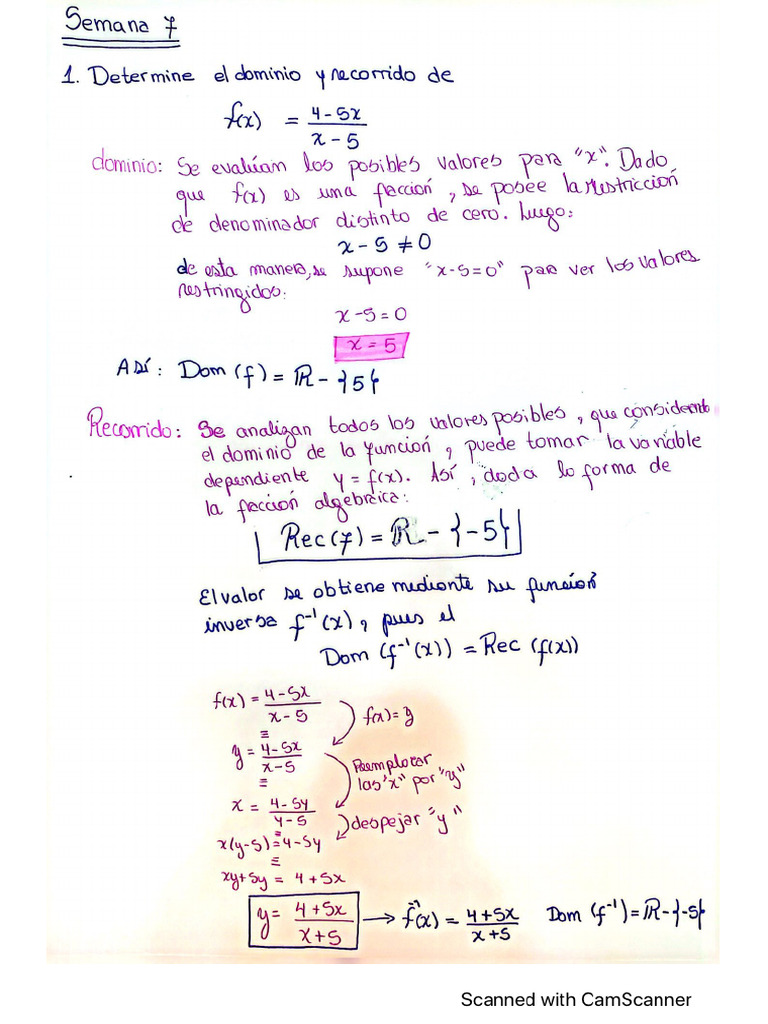 Semana 7
1. Determine el dominio y recorrido de
f(x) = 4-5x / x-5
dominio: Se evalúan los posibles valores para "x". Dado
que f(x) es una fracción, se posee la restricción
de denominador distinto de cero. Luego:
x-5 ≠ 0
de esta manera, se supone "x-5=0" para ver los valores
restringidos:
x-5=0
x=5
Así: Dom(f) = ℝ - {5}
Recorrido: Se analizan todos los valores posibles, que considerando
el dominio de la función, puede tomar la variable
dependiente y=f(x). Así, dada la forma de
la fracción algebraica:
Rec(f) = ℝ - {-5}
El valor se obtiene mediante su función
inversa f⁻¹(x), pues el
Dom (f⁻¹(x)) = Rec (f(x))
f(x) = 4-5x / x-5
f(x) = y
≡
y = 4-5x / x-5
≡
Reemplazar
las "x" por "y"
x = 4-5y / y-5
despejar "y"
≡
x(y-5) = 4-5y
≡
xy+5y = 4+5x
y = 4+5x / x+5 → f⁻¹(x) = 4+5x / x+5 Dom (f⁻¹) = ℝ - {-5}
Scanned with CamScanner